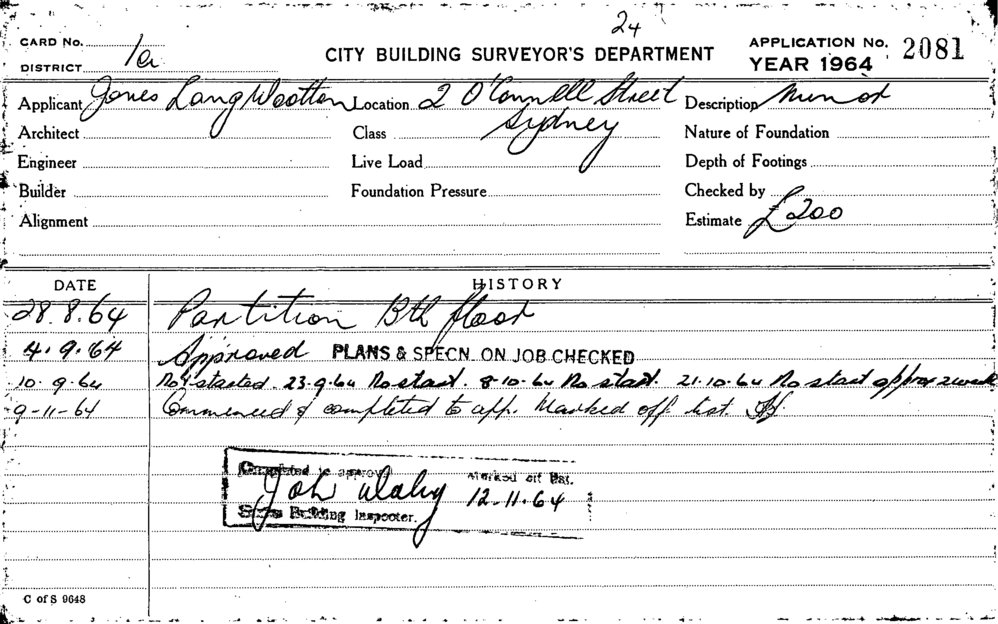 24
CARD No.
DISTRICT 1a
CITY BUILDING SURVEYOR'S DEPARTMENT
APPLICATION No. 2081
YEAR 1964
Applicant Jones Lang Wootton Location 2 O'Connell Street Description Minor
Sydney
Architect Class Nature of Foundation
Engineer Live Load Depth of Footings
Builder Foundation Pressure Checked by
Alignment Estimate £200
DATE HISTORY
28.8.64 Partition 13th floor
4.9.64 Approved PLANS & SPECN. ON JOB CHECKED
10.9.64 Not started. 23.9.64 No start. 8-10-64 No start. 21.10.64 No start approx 2 weeks
9-11-64 Commenced & completed to app. Marked off list.
Completed to approval Marked off list.
12-11-64
Building Inspector.
C of S 9648